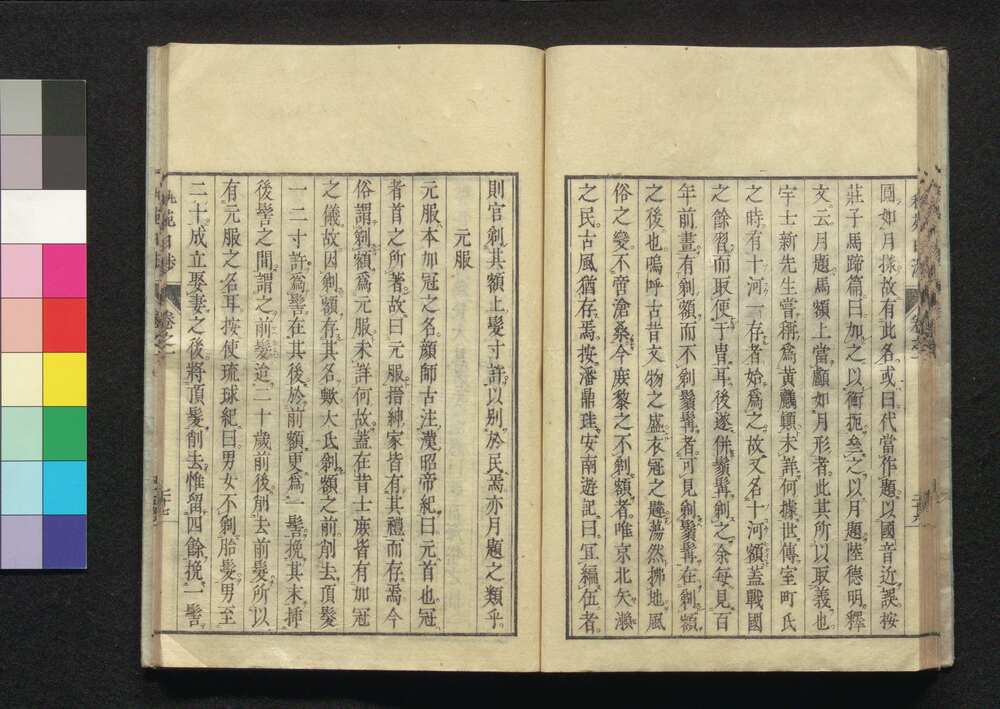 圓如月樣故有此名或曰代當作題以國音近誤按
莊子馬蹄篇曰加之以衡扼叁之以月題陸德明釋
文云月題馬額上當顱如月形者此其所以取義也
宇士新先生嘗稱爲黄鸝顖未詳何據世傳室町氏
之時有十河一存者始爲之故又名十河額蓋戰國
之餘習而取便于冑耳後遂併鬚髯剃之余每見百
年前畫有剃額而不剃鬚髯者可見剃鬚髯在剃額
之後也嗚呼古昔文物之盛衣冠之軆蕩然拂地風
俗之變不啻滄桑今庶黎之不剃額者唯京北矢瀬
之民古風猶存焉按潘鼎珪安南遊記曰宜編伍者
則官剃其額上髮寸許以别於民焉亦月題之類乎
元服
元服本加冠之名顔師古注漢昭帝紀曰元首也冠
者首之所著故曰元服搢紳家皆有其禮而存焉今
俗謂剃額爲元服未詳何故蓋在昔士庶皆有加冠
之儀故因剃額存其名歟大氐剃額之前削去頂髮
一二寸許爲髻在其後於前額更爲一髻挽其末揷
後髻之間謂之前髮迨二十歲前後刖去前髮所以
有元服之名耳按使琉球紀曰男女不剃胎髮男至
二十成立娶妻之後將頂髮削去惟留四餘挽一髻
苑日涉
卷之一